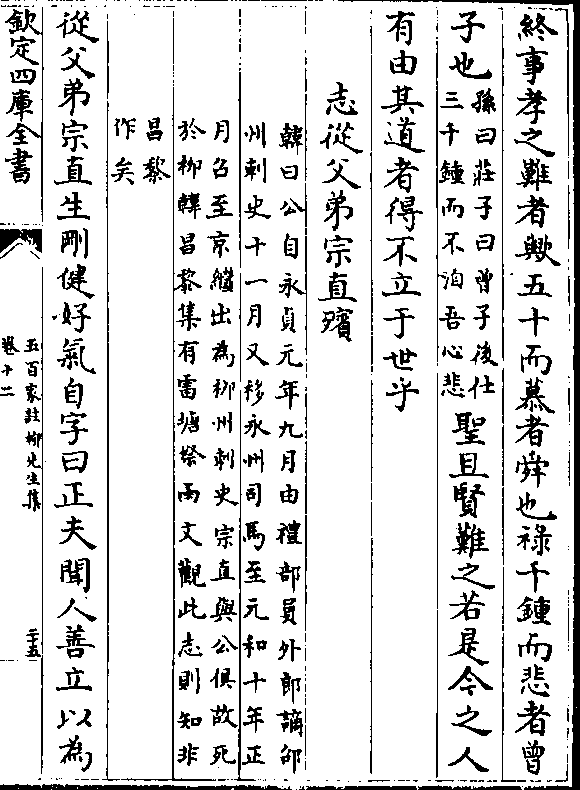 終事孝之難者歟五十而慕者舜也祿千鍾而悲者曾
子也孫曰莊子曰曾子後仕
三千鍾而不洎吾心悲聖且賢難之若是今之人
有由其道者得不立于世乎
志從父弟宗直殯
韓曰公自永貞元年九月由禮部員外郎謫邵
州刺史十一月又移永州司馬至元和十年正
月召至京繼出為柳州刺史宗直與公俱故死
於柳韓昌黎集有雷塘祭雨文觀此志則知非
昌黎
作矣
從父弟宗直生剛健好氣自字曰正夫聞人善立以為
欽定四庫全書
五百家註柳先生集
卷十二
二十五